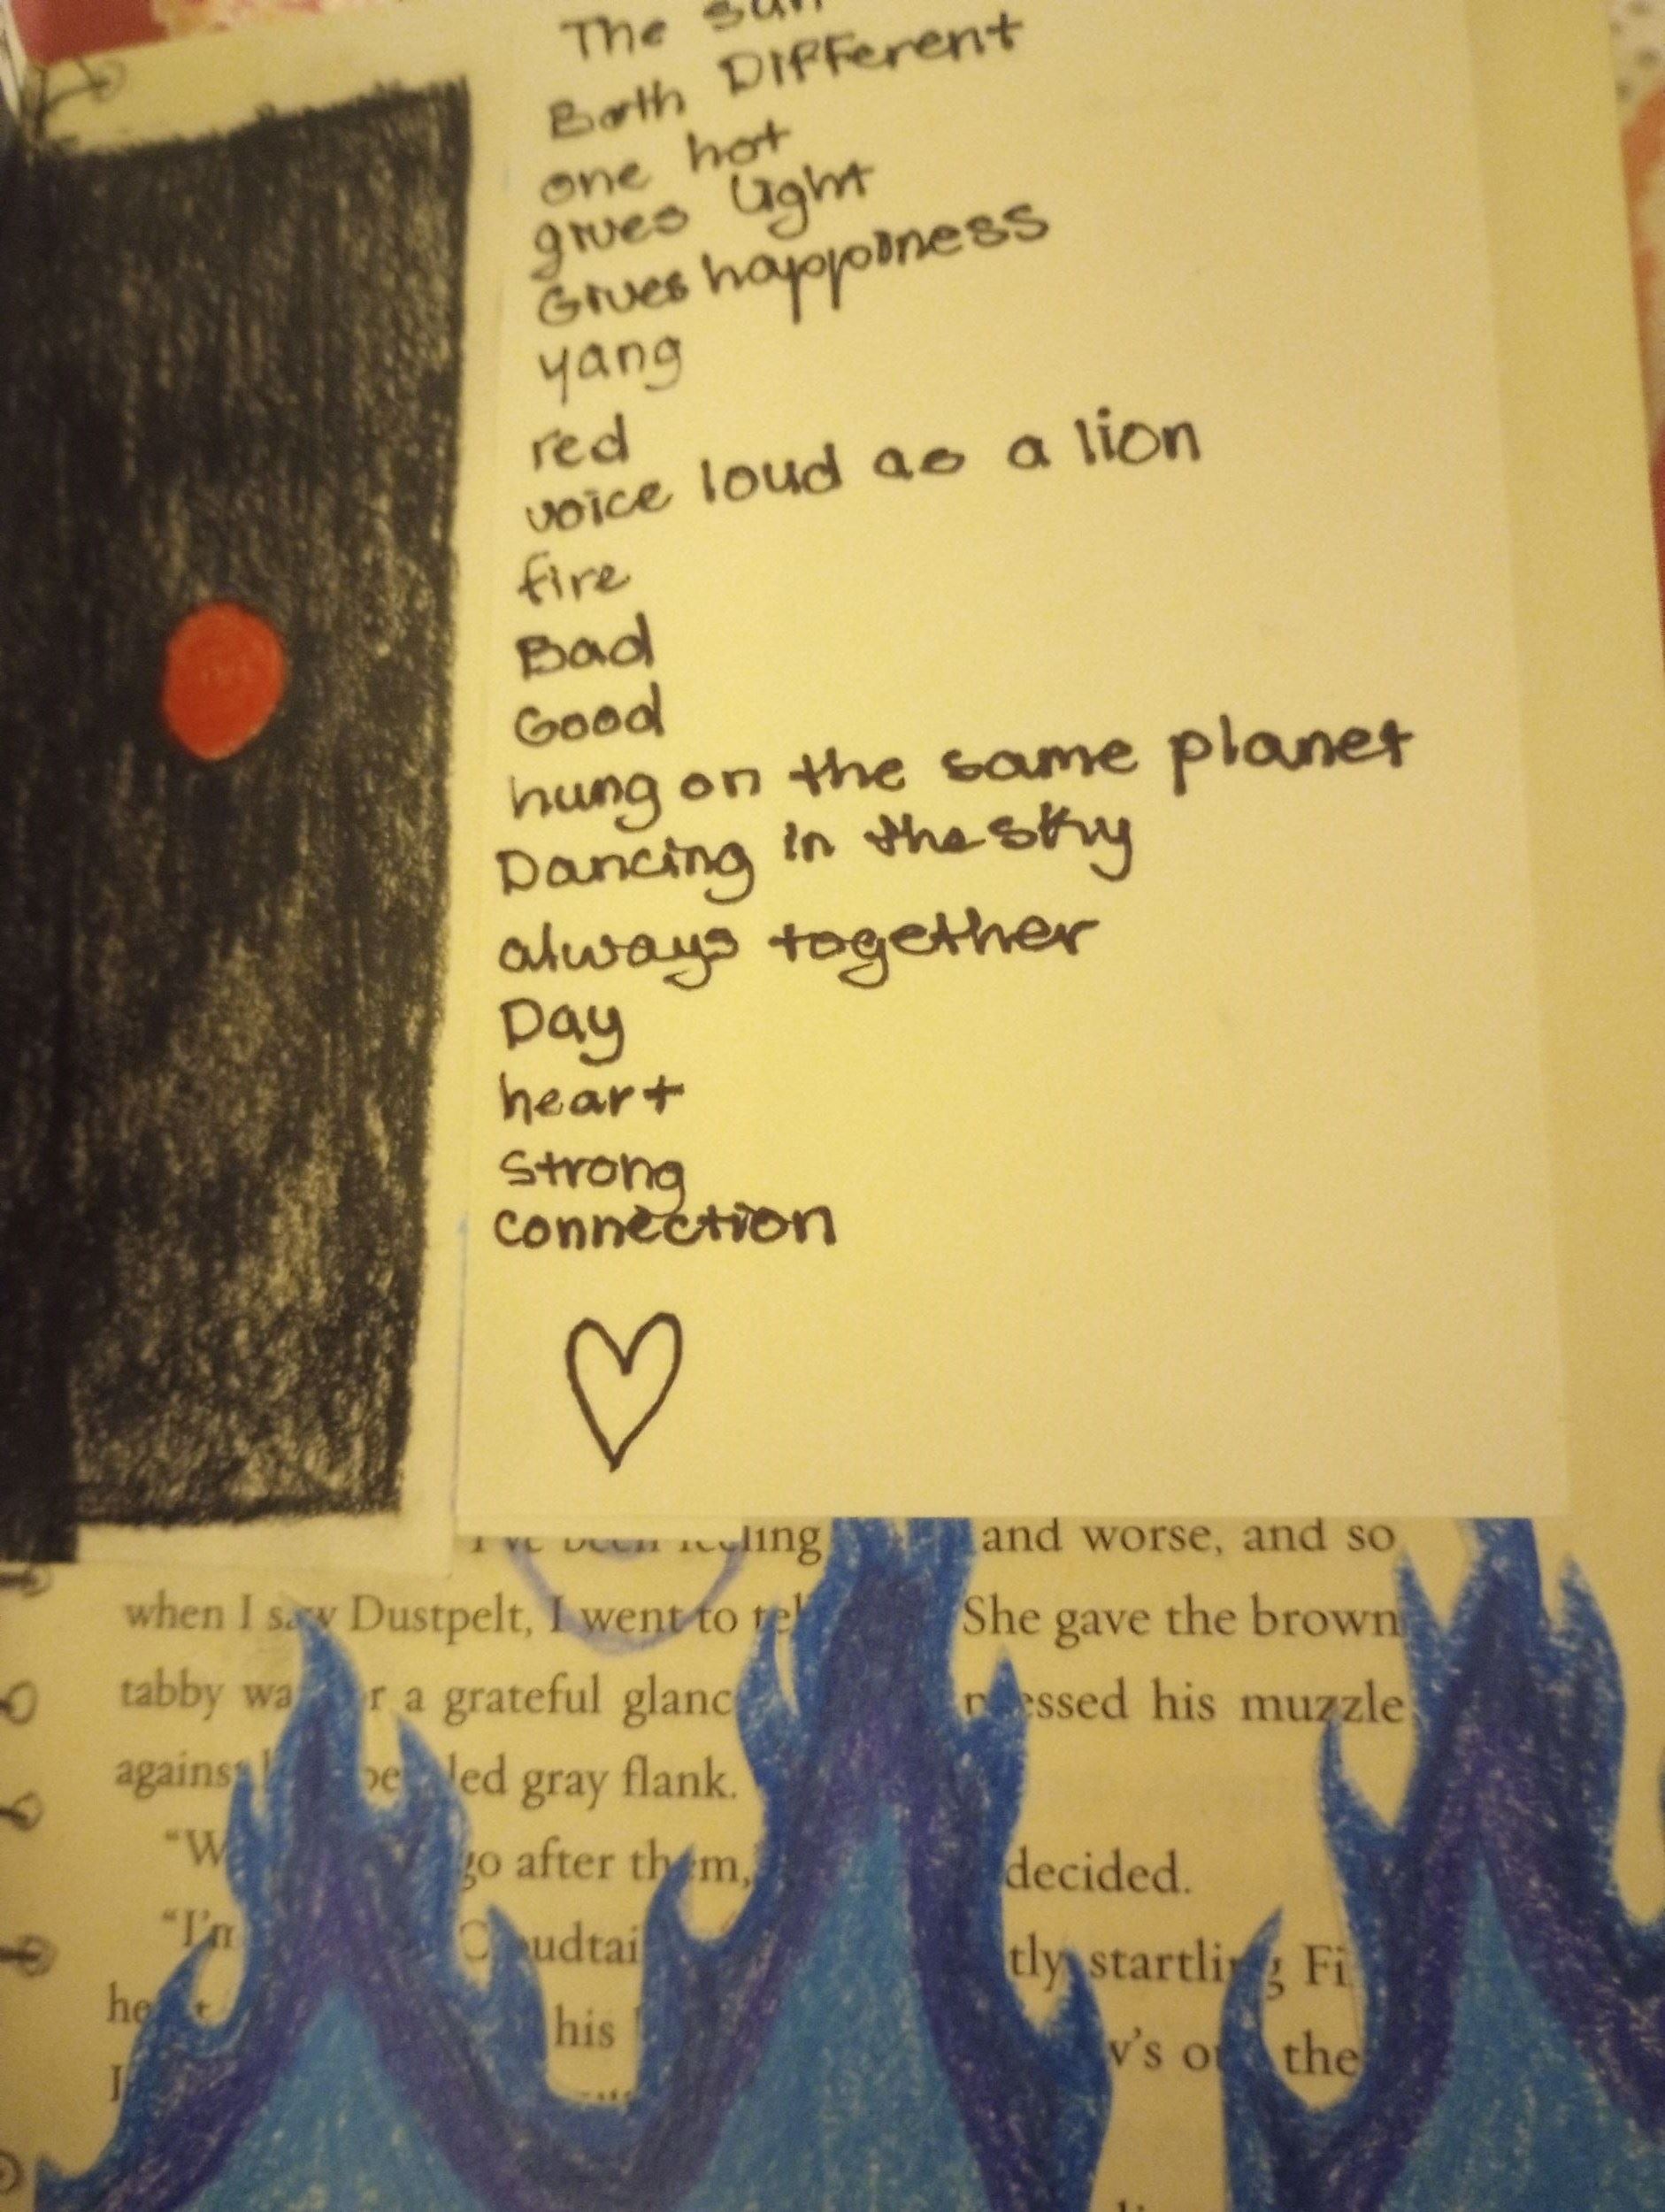 The Sun
Both Different
one hot
gives light
Gives happiness
yang
red
voice loud as a lion
fire
Bad
Good
hung on the same planet
Dancing in the sky
always together
Day
heart
Strong
connection
and worse, and so
when I saw Dustpelt, I went to She gave the brown
tabby a grateful his muzzle
gray flank.
go after them, decided.
"I'm
his
the